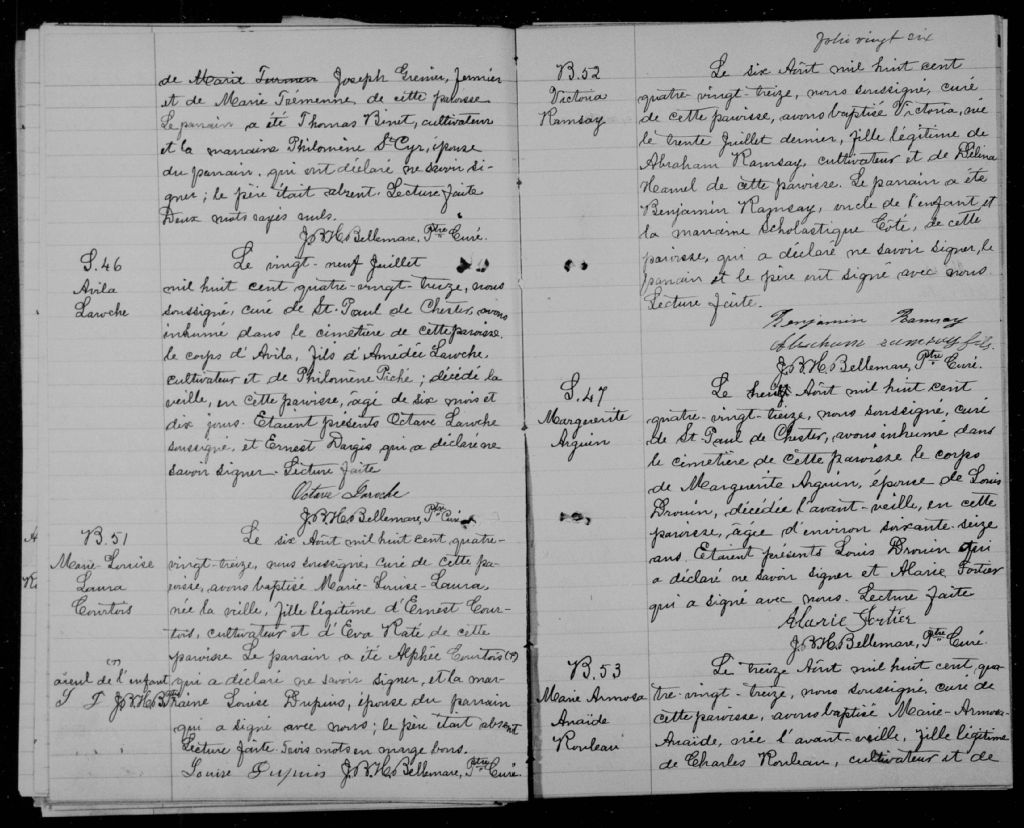 de Marie Turmen Joseph Grenier, fermier
et de Marie Trémenne de cette paroisse
Le parrain a été Thomas Binet, cultivateur
et la marraine Philomène St Cyr, épouse
du parrain, qui ont déclaré ne savoir si-
gner; le père était absent. Lecture faite
Deux mots rayés nuls.
J.B.H. Bellemare, Ptre Curé.
S.46
Avila
Laroche
Le vingt-neuf Juillet
mil huit cent quatre-vingt-treize, nous
soussigné, curé de St. Paul de Chester, avons
inhumé dans le cimetière de cette paroisse
le corps d'Avila, fils d'Amédée Laroche,
cultivateur et de Philomène Piché; décédé la
veille, en cette paroisse, agé de six mois et
dix jours. Etaient présents Octave Laroche
soussigné, et Ernest Dargis qui a déclaré ne
savoir signer. Lecture faite
Octave Laroche
J.B.H. Bellemare, Ptre Curé
B.51
Marie-Louise
Laura
Courtois
Le six Août mil huit cent quatre-
vingt-treize, nous soussigné, curé de cette pa-
roisse, avons baptisé Marie-Louise-Laura,
née la veille, fille légitime d'Ernest Cour-
tois, cultivateur et d'Eva Raté de cette
paroisse Le parrain a été Alphée Courtois (+)
(+)
aieul de l'enfant
J.B.H.B. Ptre
qui a déclaré ne savoir signer, et la mar-
raine Louise Dupuis, épouse du parrain
qui a signé avec nous; le père était absent
Lecture faite. Trois mots en marge bons.
Louise Dupuis J.B.H. Bellemare, Ptre Curé
folio vingt six
B.52
Victoria
Ramsay
Le six Août mil huit cent
quatre-vingt-treize, nous soussigné, curé
de cette paroisse, avons baptisé Victoria, née
le trente Juillet dernier, fille légitime de
Abraham Ramsay, cultivateur et de Délina
Hamel de cette paroisse. Le parrain a été
Benjamin Ramsay, oncle de l'enfant, et
la marraine Scholastique Côté, de cette
paroisse, qui a déclaré ne savoir signer, le
parrain et le père ont signé avec nous.
Lecture faite.
Benjamin Ramsay
Abraham ramsay fils.
J.B.H. Bellemare, Ptre Curé.
S.47
Marguerite
Arguin
Le neuf Août mil huit cent
quatre-vingt-treize, nous soussigné, curé
de St. Paul de Chester, avons inhumé dans
le cimetière de cette paroisse le corps
de Marguerite Arguin, épouse de Louis
Drouin, décédée l'avant-veille, en cette
paroisse, âgée d'environ soixante-seize
ans. Etaient présents Louis Drouin qui
a déclaré ne savoir signer et Alarie Fortier
qui a signé avec nous. Lecture faite
Alarie Fortier
J.B.H. Bellemare, Ptre Curé.
B.53
Marie Armosa
Anaïde
Rouleau
Le treize Août mil huit cent, qua-
tre-vingt-treize, nous soussigné, curé de
cette paroisse, avons baptisé Marie-Armosa
Anaïde, née l'avant-veille, fille légitime
de Charles Rouleau, cultivateur et de